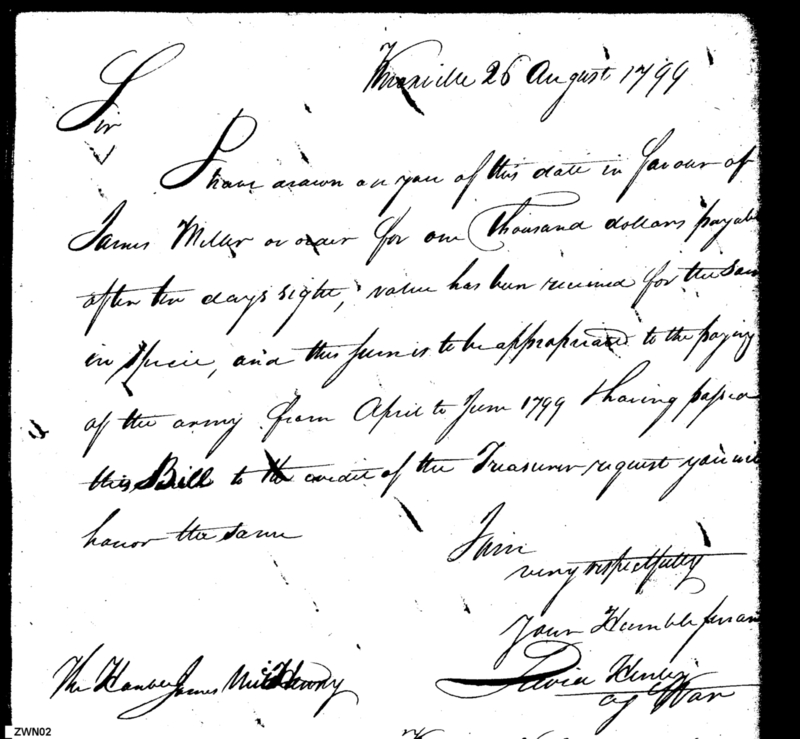 Knoxville 26 August 1799
Sir
I have drawn on you of this date in favour of
James Miller or order for one Thousand dollars payable
after ten days sight, value has been received for the sam
in specie, and this sum is to be appropriated to the paying
of the army from April to June 1799 & having passed
this Bill to the credit of the Treasurer request you will
honor the same
I am
very respectfully
your Humble servan
David Henley
ag War
The Honbe James McHenry
ZWN02